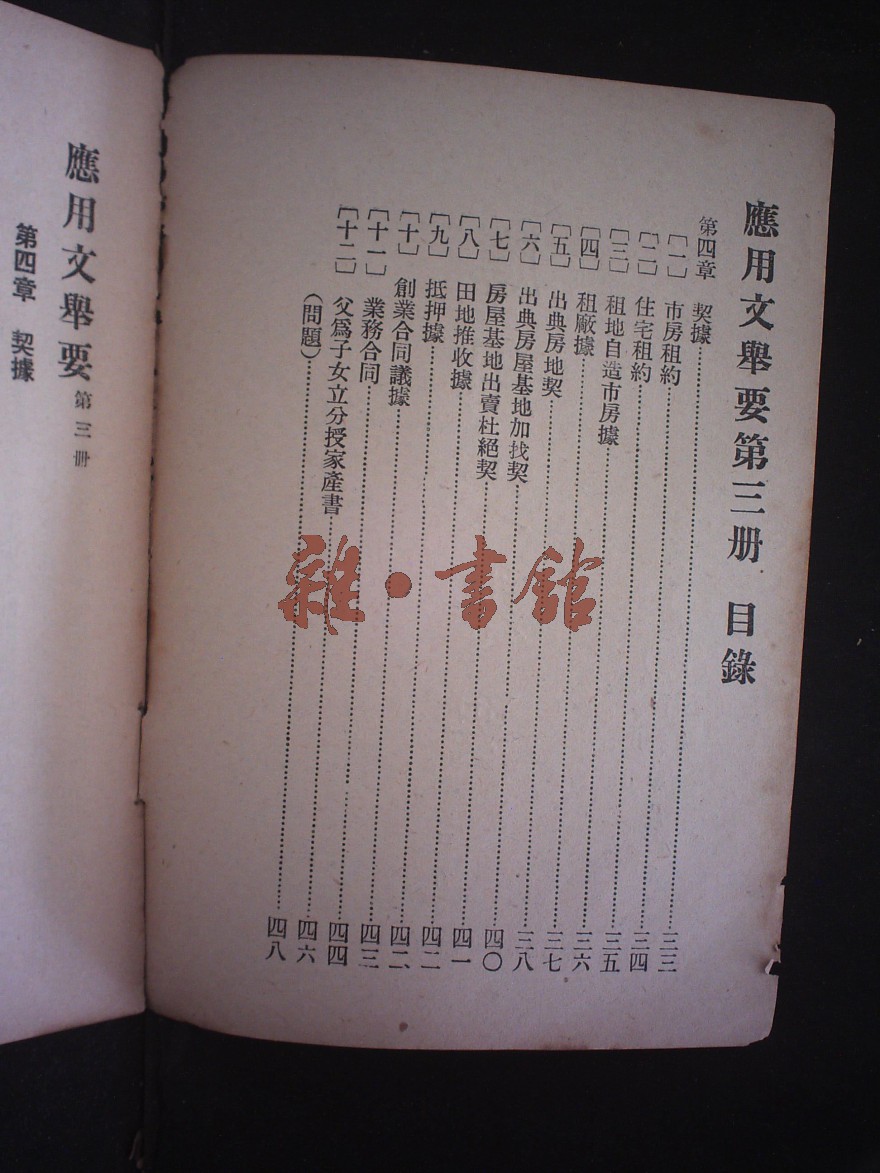 應用文舉要第三册 目錄
第四章 契據……三三
〔一〕 市房租約……三四
〔二〕 住宅租約……三五
〔三〕 租地自造市房據……三六
〔四〕 租廠據……三七
〔五〕 出典房地契……三八
〔六〕 出典房屋基地加找契……四〇
〔七〕 房屋基地出賣杜絕契……四一
〔八〕 田地推收據……四二
〔九〕 抵押據……四二
〔十〕 創業合同議據……四三
〔十一〕 業務合同……四四
〔十二〕 父爲子女立分授家產書……四六
（問題）……四八
應用文舉要 第三册
第四章 契據
雜·書館